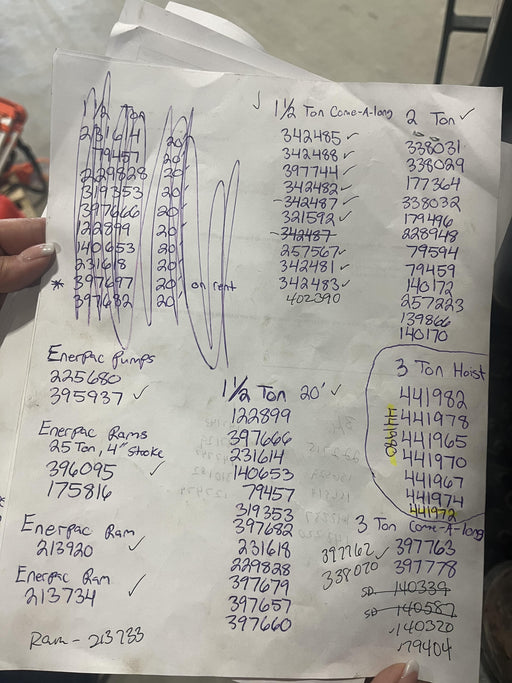 1 1/2 Ton
231614 20'
79457 20'
229828 20'
319353 20'
397666 20'
122899 20'
140653 20'
231618 20'
* 397697 20' on rent
397682 20'
✓ 1 1/2 Ton Come-A-long
342485 ✓
342488 ✓
397744 ✓
342482 ✓
342487 ✓
321592 ✓
342487
257567 ✓
342481 ✓
342483 ✓
402390
2 Ton ✓
338031
338029
177364
338032
179496
228948
79594
79459
140172
257223
139866
140170
Enerpac Pumps
225680
395937 ✓
Enerpac Rams
25 Ton, 4" stroke
396095 ✓
175816
Enerpac Ram
213920 ✓
Enerpac Ram
213734 ✓
Ram - 213733
1 1/2 Ton 20' ✓
122899
397666
231614
140653
79457
319353
397682
231618
229828
397679
397657
397660
3 Ton Hoist
441982
441978
441965
441970
441967
441974
441972
441980
3 Ton Come-A-long
397762 ✓ 397763
338020 397778
SD 140339
SD 140587
✓ 140320
✓ 79404